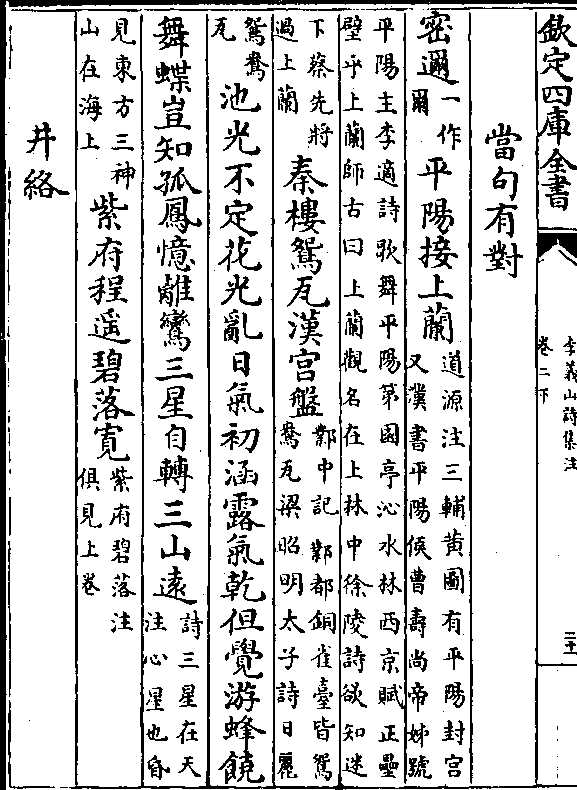 欽定四庫全書
李義山詩集注
卷二下
二十一
當句有對
密邇
一作
爾
平陽接上蘭
道源注三輔黄圖有平陽封宫
又漢書平陽侯曹壽尚帝姊號
平陽主李適詩歌舞平陽第園亭沁水林西京賦正壘
壁乎上蘭師古曰上蘭觀名在上林中徐陵詩欲知迷
下蔡先將
過上蘭
秦樓鴛瓦漢宫盤
鄴中記鄴都銅雀臺皆鴛
鴦瓦梁昭明太子詩日麗
鴛鴦
瓦
池光不定花光亂日氣初涵露氣乾但覺游蜂饒
舞蝶豈知孤鳳憶離鸞三星自轉三山遠
詩三星在天
注心星也昏
見東方三神
山在海上
紫府程遥碧落寛
紫府碧落注
俱見上卷
井絡